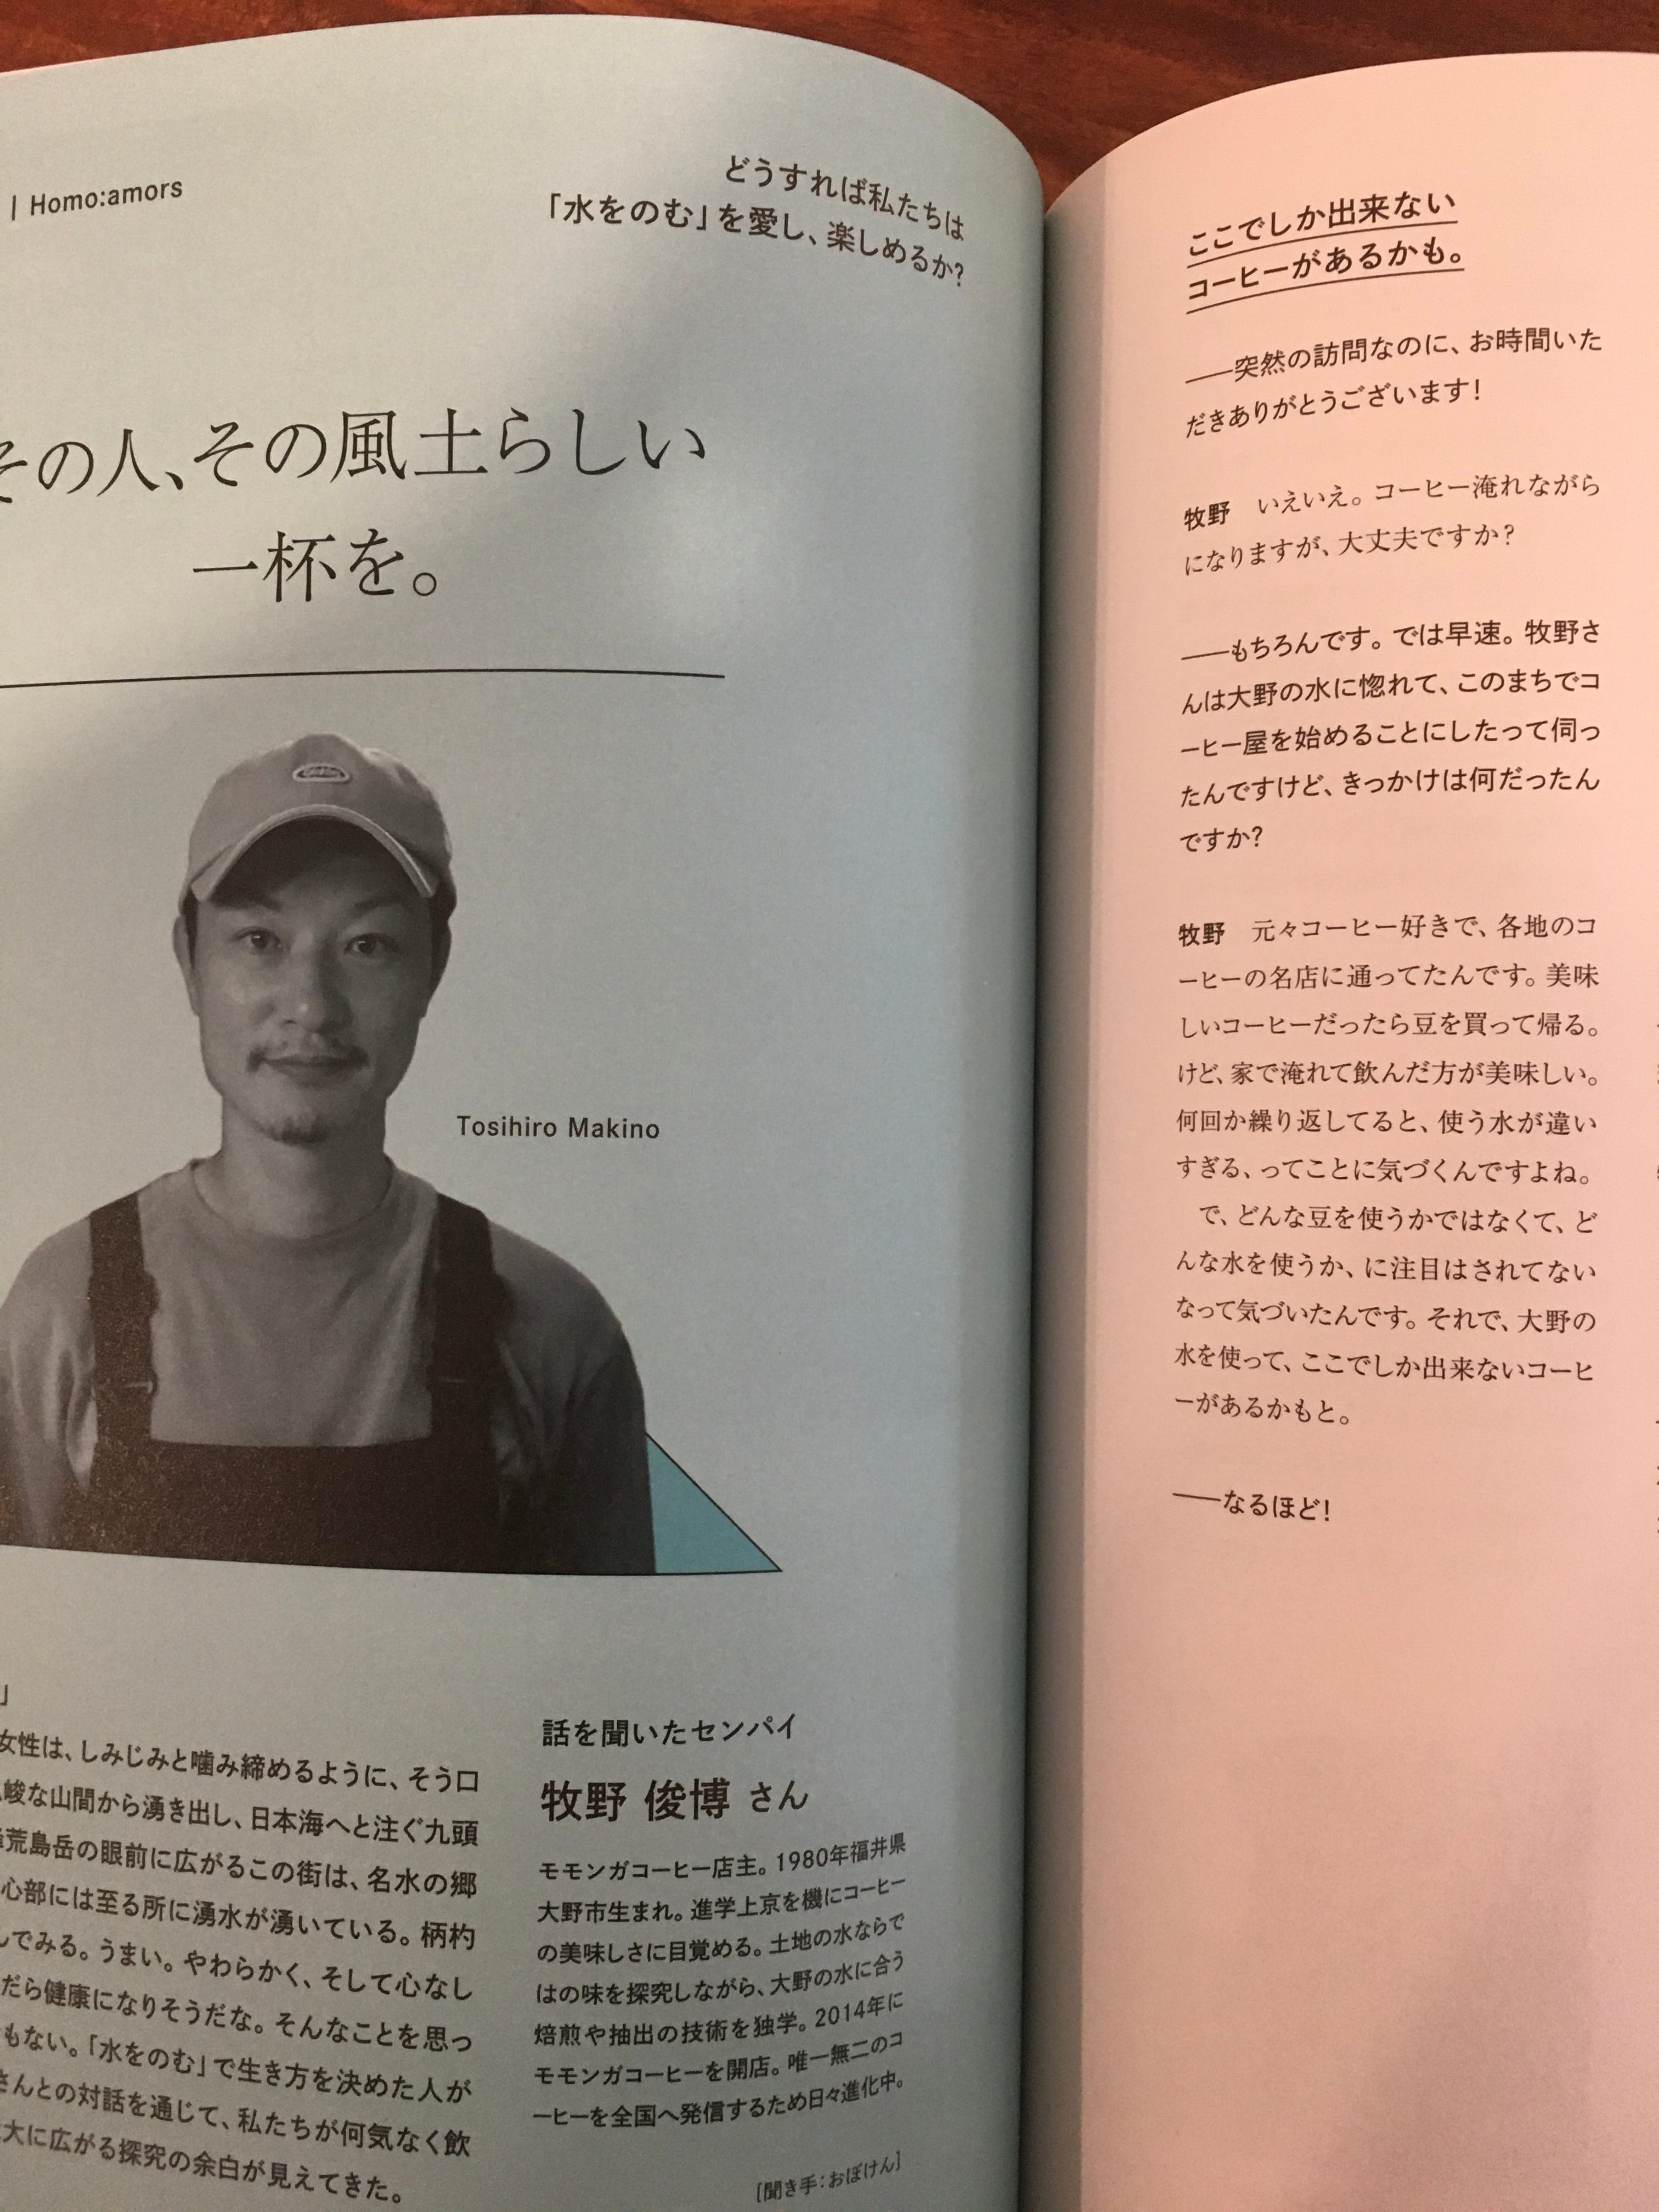 | Homo:amors
どうすれば私たちは
「水をのむ」を愛し、楽しめるか?
その人、その風土らしい
一杯を。
Tosihiro Makino
」
女性は、しみじみと噛み締めるように、そう口
峻な山間から湧き出し、日本海へと注ぐ九頭
荒島岳の眼前に広がるこの街は、名水の郷
心部には至る所に湧水が湧いている。柄杓
んでみる。うまい。やわらかく、そして心なし
だら健康になりそうだな。そんなことを思っ
もない。「水をのむ」で生き方を決めた人が
さんとの対話を通じて、私たちが何気なく飲
大に広がる探究の余白が見えてきた。
話を聞いたセンパイ
牧野 俊博 さん
モモンガコーヒー店主。1980年福井県
大野市生まれ。進学上京を機にコーヒー
の美味しさに目覚める。土地の水ならで
はの味を探究しながら、大野の水に合う
焙煎や抽出の技術を独学。2014年に
モモンガコーヒーを開店。唯一無二のコ
ーヒーを全国へ発信するため日々進化中。
[聞き手:おぼけん]
ここでしか出来ない
コーヒーがあるかも。
――突然の訪問なのに、お時間いた
だきありがとうございます!
牧野 いえいえ。コーヒー淹れながら
になりますが、大丈夫ですか?
――もちろんです。では早速。牧野さ
んは大野の水に惚れて、このまちでコ
ーヒー屋を始めることにしたって伺っ
たんですけど、きっかけは何だったん
ですか?
牧野 元々コーヒー好きで、各地のコ
ーヒーの名店に通ってたんです。美味
しいコーヒーだったら豆を買って帰る。
けど、家で淹れて飲んだ方が美味しい。
何回か繰り返してると、使う水が違い
すぎる、ってことに気づくんですよね。
で、どんな豆を使うかではなくて、ど
んな水を使うか、に注目はされてない
なって気づいたんです。それで、大野の
水を使って、ここでしか出来ないコーヒ
ーがあるかもと。
――なるほど!